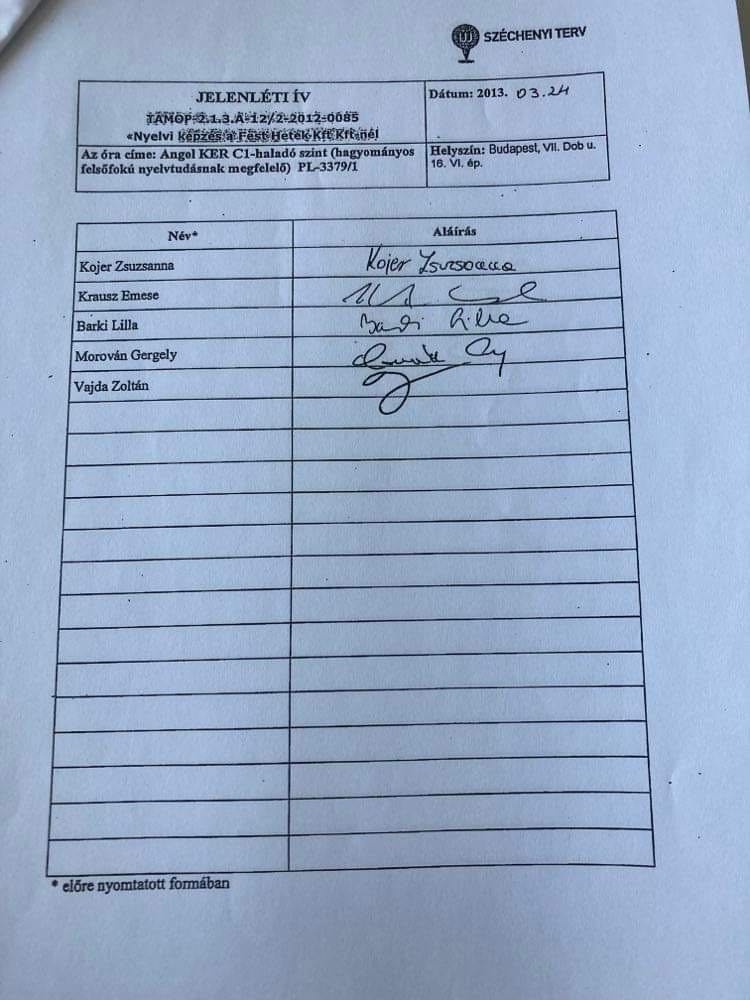 ÚJ SZÉCHENYI TERV
JELENLÉTI ÍV
TÁMOP-2.1.3.A-12/2-2012-0085
«Nyelvi képzés a Fest Hetek Kft Kft-nél
Dátum: 2013. 03.24
Az óra címe: Angol KER C1-haladó szint (hagyományos
felsőfokú nyelvtudásnak megfelelő) PL-3379/1
Helyszín: Budapest, VII. Dob u.
16. VI. ép.
Név*
Aláírás
Kojer Zsuzsanna
Kojer Zsuzsanna
Krausz Emese
Barki Lilla
Barki Lilla
Morován Gergely
Vajda Zoltán
* előre nyomtatott formában